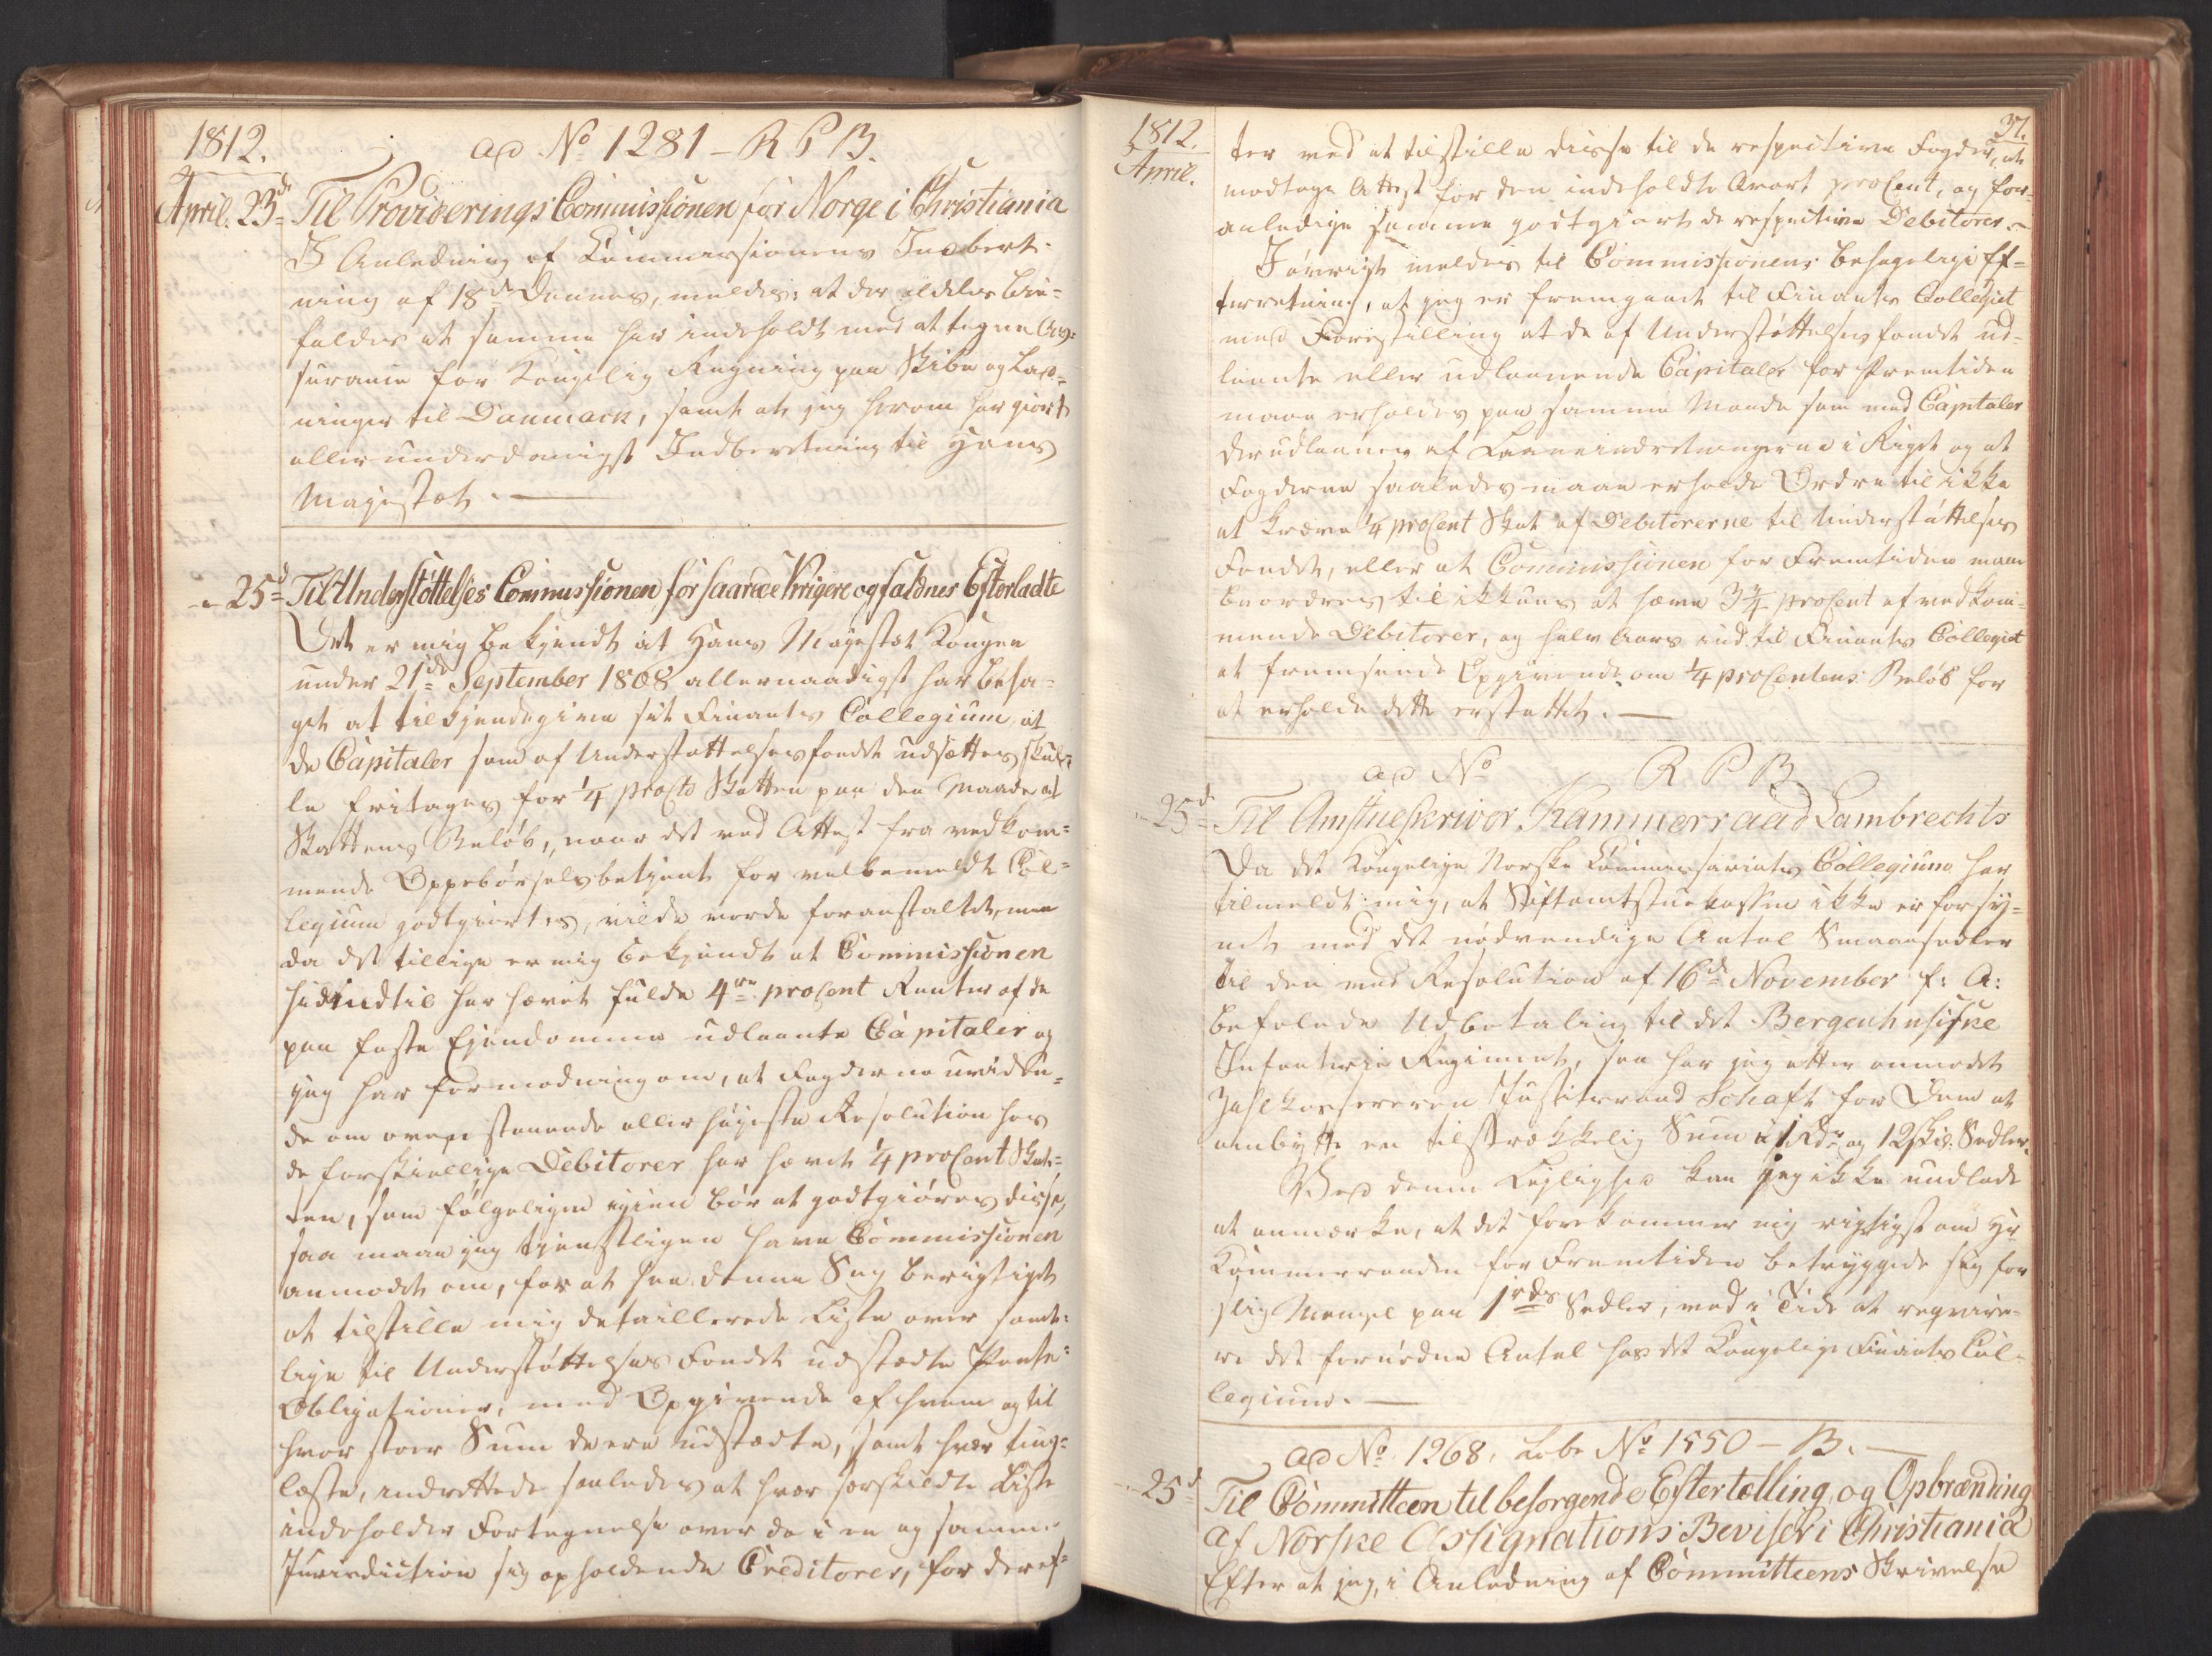 1812.
ad No 1281 - R P B.
April. 23de Til Provideerings Commissionen for Norge i Christiania
I Anledning af Kommissionens Indberet-
ning af 18de Dennes, meldes: at der aldeles bi-
faldes at samme har indeholdt med at tegne As-
surance for Kongelig Regning paa Skibe og Lad-
ninger til Danmark, samt at jeg herom har giort
allerunderdanigst Indberetning til Hans
Majestæt. —
- 25de Til Understøttelses Commissionen for saarede Krigere og faldnes Efterladte
Det er mig bekjendt at Hans Majestæt Kongen
under 21de September 1808 allernaadigst har beha-
get at tilkjendegive sit Finants Collegium, at
de Capitaler som af Understøttelsesfondet udsættes skul-
le fritages for 1/4 procto Skatten paa den Maade at
Skattens Beløb, naar det ved Attest fra vedkom-
mende Oppebørselsbetjent for velbemeldte Col-
legium godtgiørtes, vilde vorde foranstaltet, men
da det tillige er mig bekjendt at Commissionen
hidindtil har hævet fulde 4re procent Renter af de
paa faste Ejendomme udlaante Capitaler og
jeg har formodning om, at Fogderne uviden-
de om ovenstaaende allerhøjeste Resolution hos
de forskiellige Debitorer har hævet 1/4 procent Skat-
ten, som følgeligen igien bør at godtgiøres disse,
saa maae jeg tjenstligen have Commissionen
anmodet om, for at faa denne Sag berigtiget
at tilstille mig detaillerede Liste over samt-
lige til Understøttelses Fondet udstædte Pante-
Obligationer, med Opgivende af hvem og til
hvor stoer Sum de ere udstædte, samt hvor ting-
læste, indrettede saaledes at hver særskildte Liste
indeholder Fortegnelse over de i en og samme
Jurisdiction sig opholdende Creditorer, for deref-
37.
1812.
April.
ter ved at tilstille disse til de respective Fogder, at
modtage Attest for den indeholdte Qvart procent, og for-
anledige samme godtgiort de respective Debitorer. -
Iøvrigt meldes til Commissionens behagelige Ef-
terretning, at jeg er fremgaaet til Finants Collegiet
med Forestilling at de af Understøttelsesfondet ud-
laante eller udlaanende Capitaler for Fremtiden
maae erholdes paa samme Maade som med Capitaler
der udlaanes af Laaneindretningerne i Riget og at
Fogderne saaledes maae erholde Ordre til ikke
at kræve 1/4 procent Skat af Debitorerne til Understøttelses
Fondet, eller at Commissionen for Fremtiden maae
beordres til ikkuns at hæve 3 3/4 procent af vedkom-
mende Debitorer, og halv Aars indtil Finants Collegiet
at fremsende Opgivende om 1/4 procentens Beløb for
at erholde dette erstattet. —
ad No R P B
- 25de Til Amstueskriver Kammerraad Lambrechts
Da det Kongelige Norske Commissariats Collegium har
tilmeldt mig, at Stiftamtstuekassen ikke er forsy-
net med det nødvendige Antal Smaasedler
til den ved Resolution af 16de November f: A:
befalede Udbetaling til det Bergenhusiske
Infanterie Regiment, saa har jeg atter anmodet
Zahlkassereren Justitsraad Schaft for Dem at
ombytte en tilstrækkelig Sum i 1 Rdr og 12 skil. Sedler.
Ved denne Lejlighed kan jeg ikke undlade
at anmærke, at det forekommer mig rigtigst om Hr
Kammerraaden for Fremtiden betryggede sig for
slig Mangel paa 1rds Sedler, ved i Tide at reqvire-
re det fornødne Antal hos det Kongelige Finants Col-
legium. —
ad No 1268. Løbe No 1550 - B. —
- 25de Til Committeen til besørgende Eftertælling og Opbrænding
af Norske Assignations Beviser i Christiania
Efter at jeg, i Anledning af Committeens Skrivelse